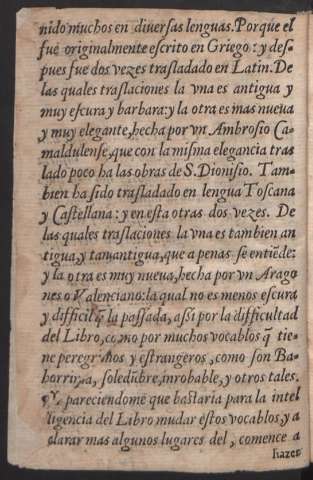 nido muchos en diuersas lenguas. Porque el
fue originalmente escrito en Griego: y des-
pues fue dos vezes trasladado en Latin. De
las quales traslaciones la vna es antigua y
muy escura y barbara: y la otra es mas nueua
y muy elegante, hecha por vn Ambrosio Ca-
maldulense, que con la misma elegancia tras
lado poco ha las obras de S. Dionisio. Tam-
bien ha sido trasladado en lengua Toscana
y Castellana: y en esta otras dos vezes. De
las quales traslaciones la vna es tambien an
tigua, y tan antigua, que a penas se entiẽde:
y la otra es muy nueua, hecha por vn Arago
nes o Valenciano: la qual no es menos escura
y difficil q̃ la passada, assi por la difficultad
del Libro, como por muchos vocablos q̃ tie-
ne peregrinos y estrangeros, como son Ba-
horrina, soledũbre, inrobable, y otros tales.
Y pareciendome que bastaria para la intel
ligencia del Libro mudar estos vocablos, y a
clarar mas algunos lugares del, comence a
hazer